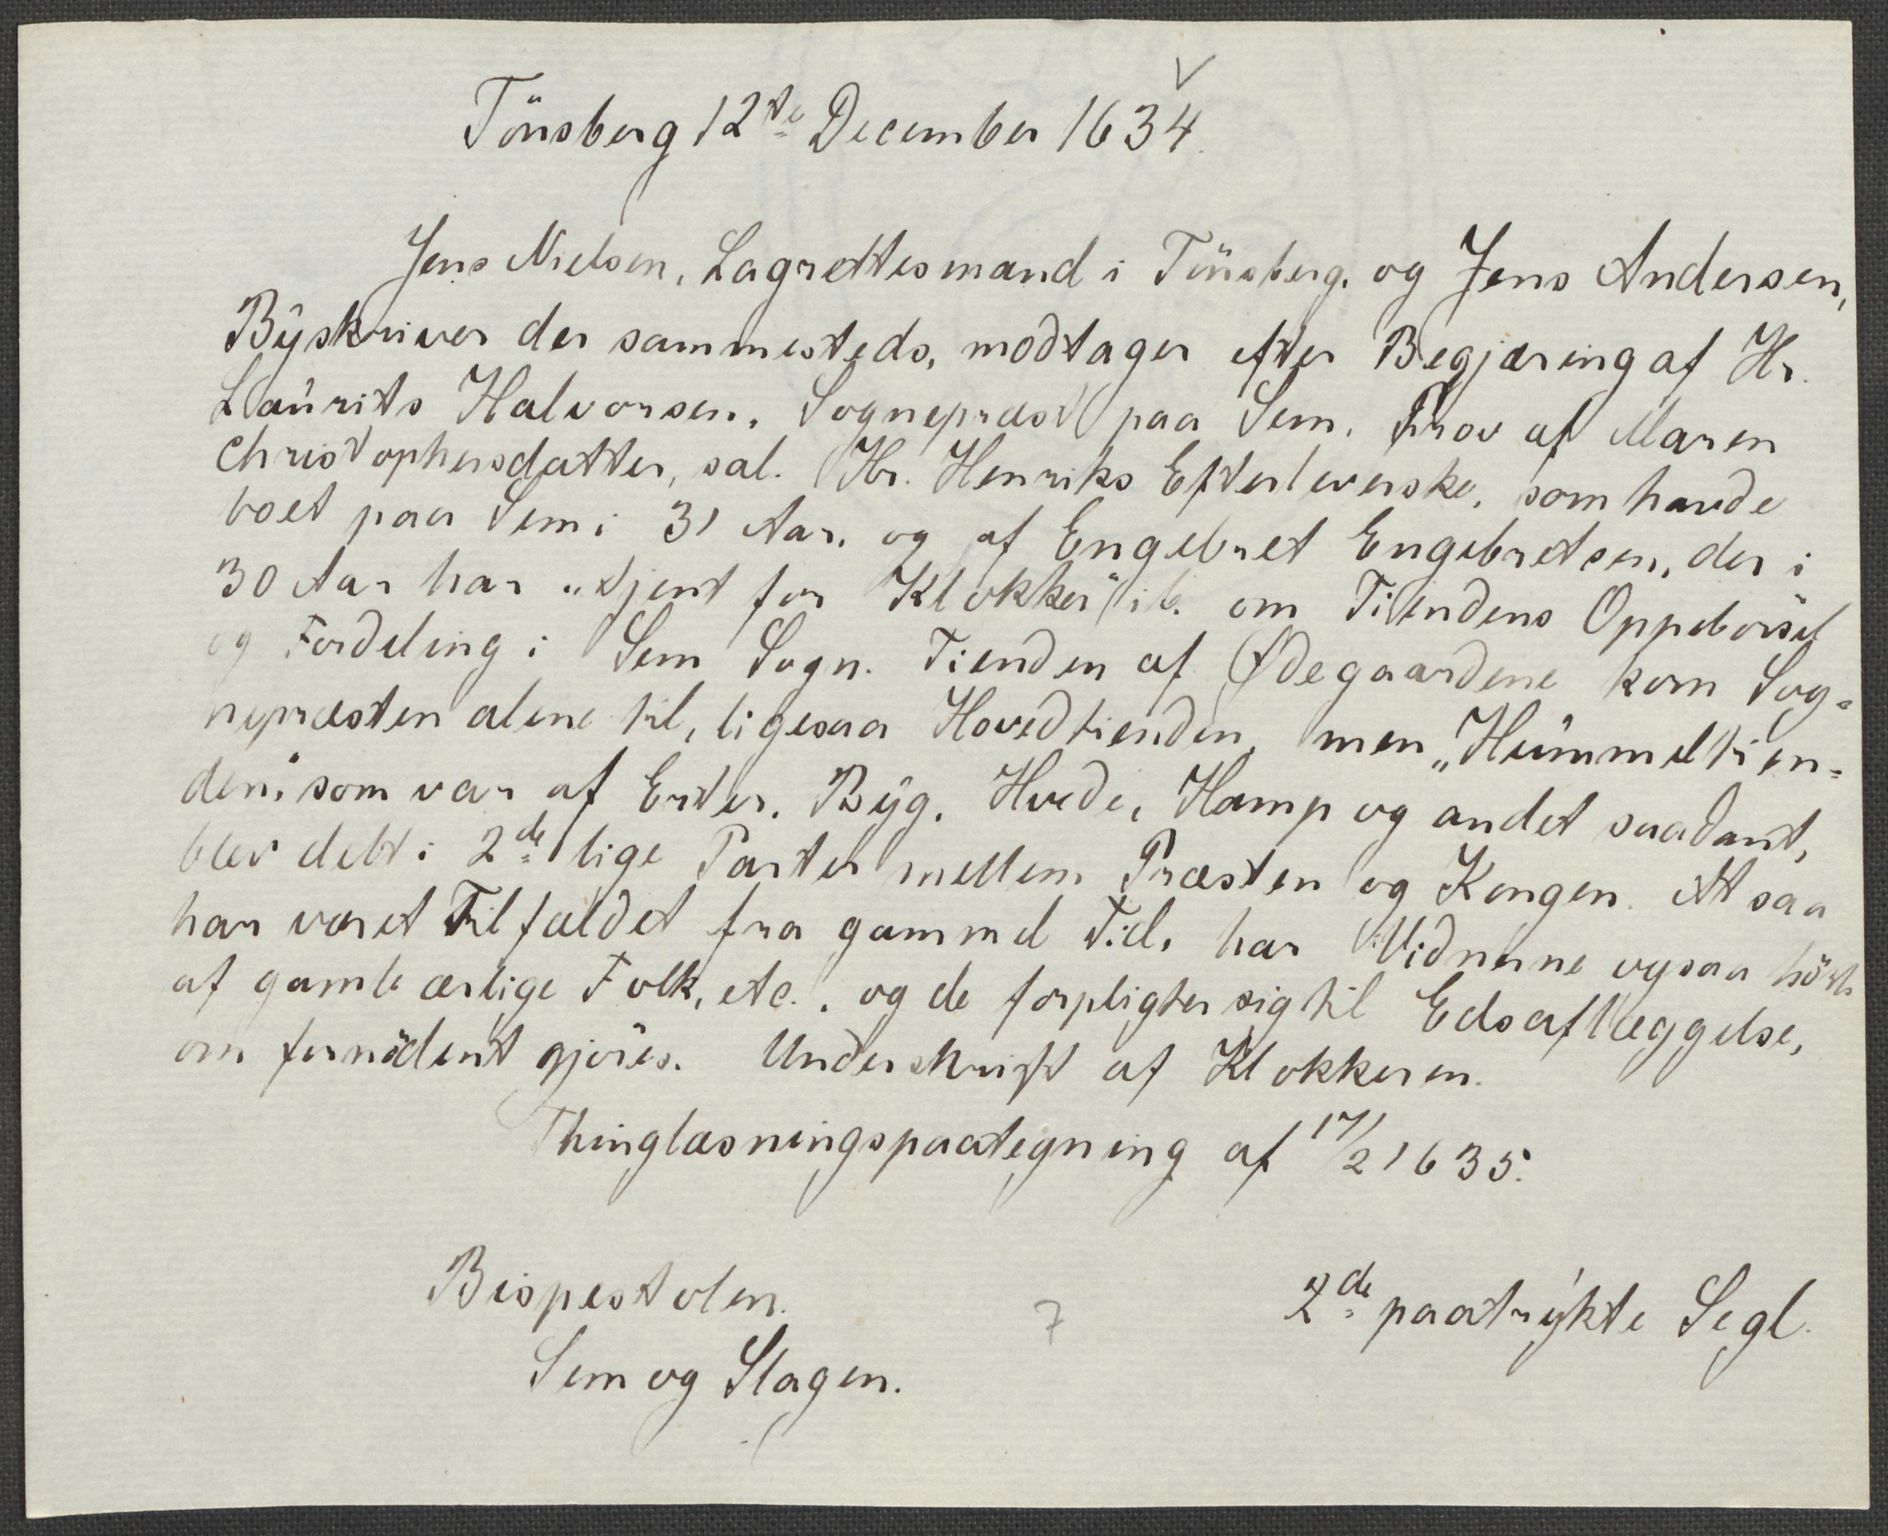 Tönsberg 12te December 1634.
Jens Nielsen, Lagrettesmand i Tönsberg, og Jens Andersen,
Byskriver der sammesteds, modtager efter Begjæring af Hr.
Laurits Halvorsen, Sogneprest paa Sem, Prov af Maren
Christophersdatter, sal. Hr. Henriks Efterleverske, som havde
boet paa Sem i 31 Aar, og af Engebret Engebretsen, der i
30 Aar har „tjent for Klokker" ib. om Tiendens Oppebörsel
og Fordeling i Sem Sogn. Tienden af Ødegaardene kom Sog=
nepræsten alene til, ligesaa Hovedtienden, men „Hummeltien=
den", som var af Erter, Byg, Hvede, Hamp og andet saadant,
blev delt i 2de lige Parter mellem Præsten og Kongen. At saa
har været Tilfældet fra gammel Tid, har Vidnerne ogsaa hört
af gamle ærlige Folk, etc., og de forpligter sig til Edsaflæggelse,
om fornödent gjöres. Underskrift af Klokkeren.
Thinglæsningspaategning af 17/2 1635.
Bispestolen. 2de paatrykte Segl.
7
Sem og Slagen.